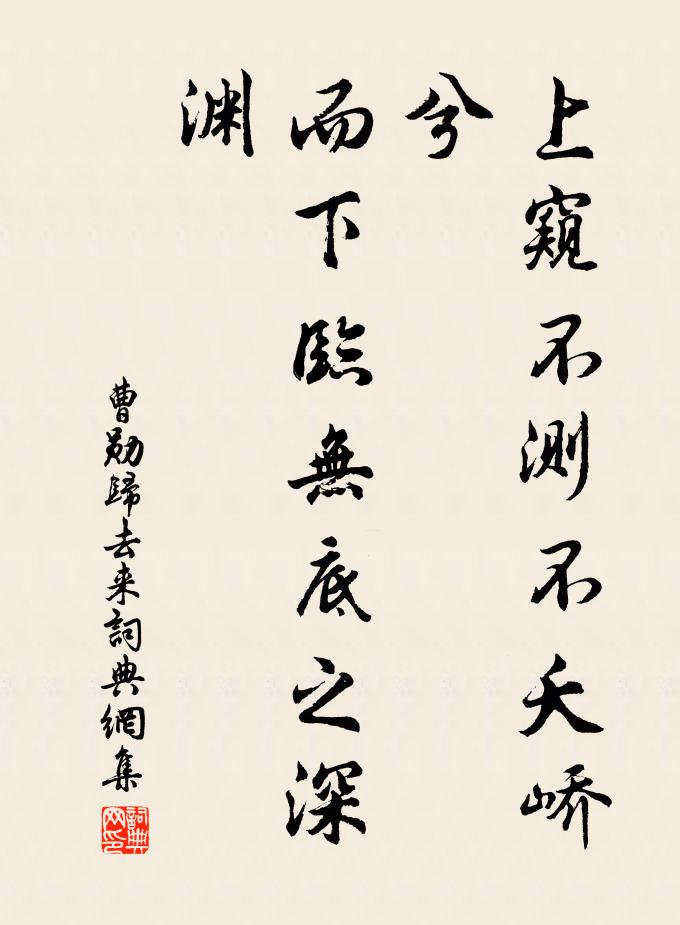 上窺不測不夭峤
兮
而下臨無底之深
渊
曹勋歸去来詞典網集
詞典网印